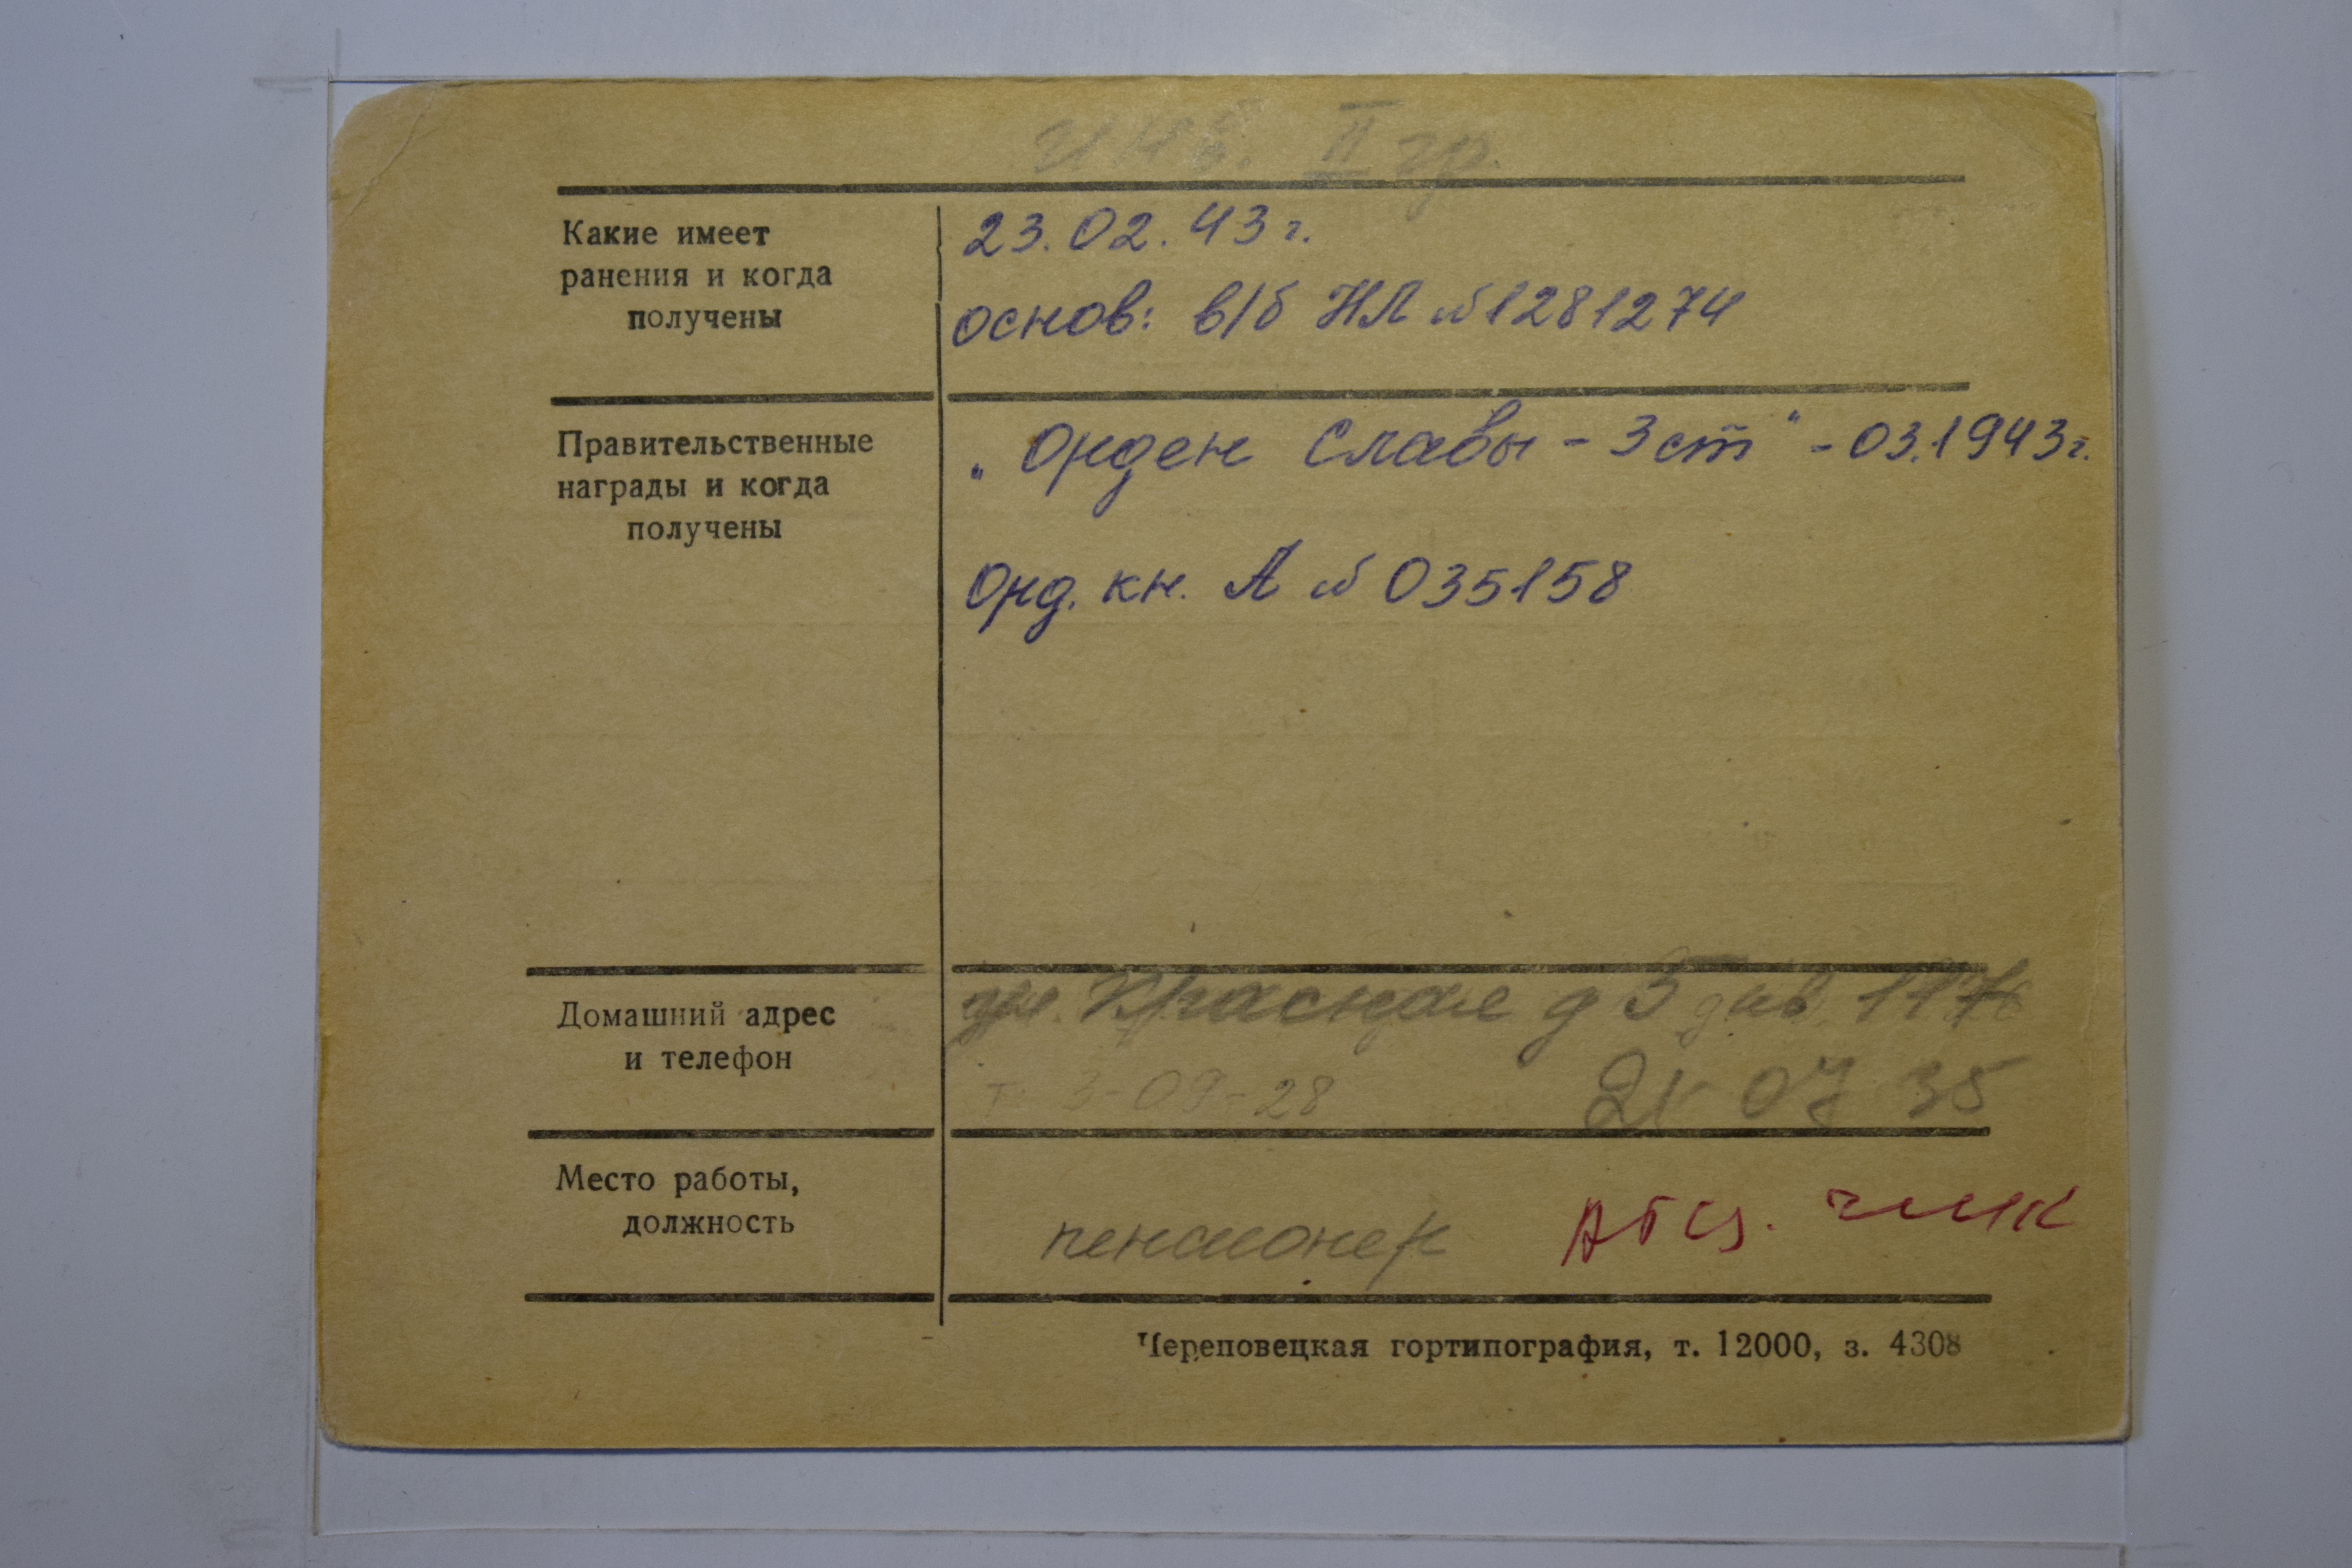 инв. II гр.
Какие имеет
ранения и когда
получены
23.02.43 г.
основ: в/б НЛ №1281274
Правительственные
награды и когда
получены
„Орден Славы - 3 ст" - 03.1943 г.
Орд. кн. А № 035158
Домашний адрес
и телефон
ул. Красная д 3
т. 3-09-28
21 07 35
Место работы,
должность
пенсионер
чмк
Череповецкая гортипография, т. 12000, з. 4308